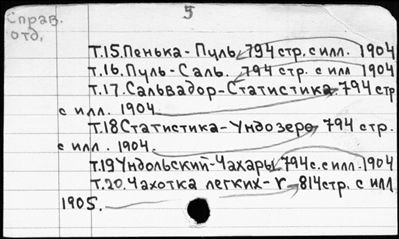 5
Справ.
отд.
Т.15. Пенька - Пуль. 794 стр. с илл. 1904
Т.16. Пуль - Саль. 794 стр. с илл 1904
Т.17. Сальвадор - Статистика 794 стр
с илл. 1904
Т.18 Статистика - Ундозеро 794 стр.
с илл. 1904.
Т.19 Ундольский - Чахары 794 с. с илл. 1904
Т.20. Чахотка легких - V 814 стр. с илл
1905.